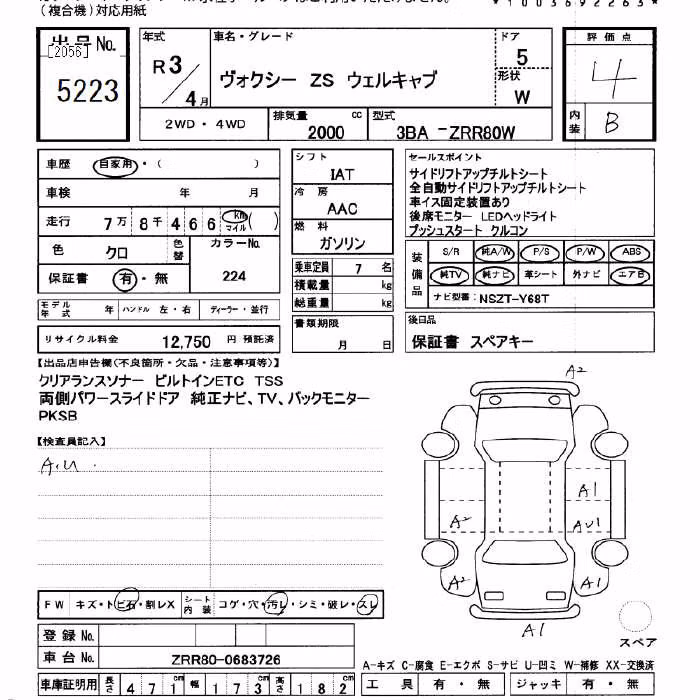 (複合機)対応用紙
*1003692263*
出品No.
[2056]
5223
年式
R3/4月
車名・グレード
ヴォクシー ZS ウェルキャブ
ドア
5
形状
W
評価点
4
内装
B
2WD・4WD
排気量 cc
2000
型式
3BA -ZRR80W
車歴 自家用・( )
車検 年 月
走行 7万 8千 4 6 6 km マイル ( )
色 クロ
色替
カラーNo.
224
保証書 有・無
モデル年式 年
ハンドル 左・右
ディーラー・並行
リサイクル料金 12,750 円 預託済
シフト
IAT
冷房
AAC
燃料
ガソリン
乗車定員 7 名
積載量 kg
総重量 kg
書類期限
月 日
セールスポイント
サイドリフトアップチルトシート
全自動サイドリフトアップチルトシート
車イス固定装置あり
後席モニター LEDヘッドライト
プッシュスタート クルコン
装備品
S/R 純A/W P/S P/W ABS
純TV 純ナビ 革シート 外ナビ エアB
ナビ型番: NSZT-Y68T
後日品
保証書 スペアキー
【出品店申告欄(不良箇所・欠品・注意事項等)】
クリアランスソナー ビルトインETC TSS
両側パワースライドドア 純正ナビ、TV、バックモニター
PKSB
【検査員記入】
A.U.
A2
A1
A2
AU1
A2
A1
A1
スペア
FW キズ・トビ石・割レX
シート内装
コゲ・穴・汚レ・シミ・破レ・スレ
登録No.
車台No.
ZRR80-0683726
車庫証明用 長さ 471cm 幅 173cm 高さ 182cm
A-キズ C-腐食 E-エクボ S-サビ U-凹ミ W-補修 XX-交換済
工具 有・無 ジャッキ 有・無